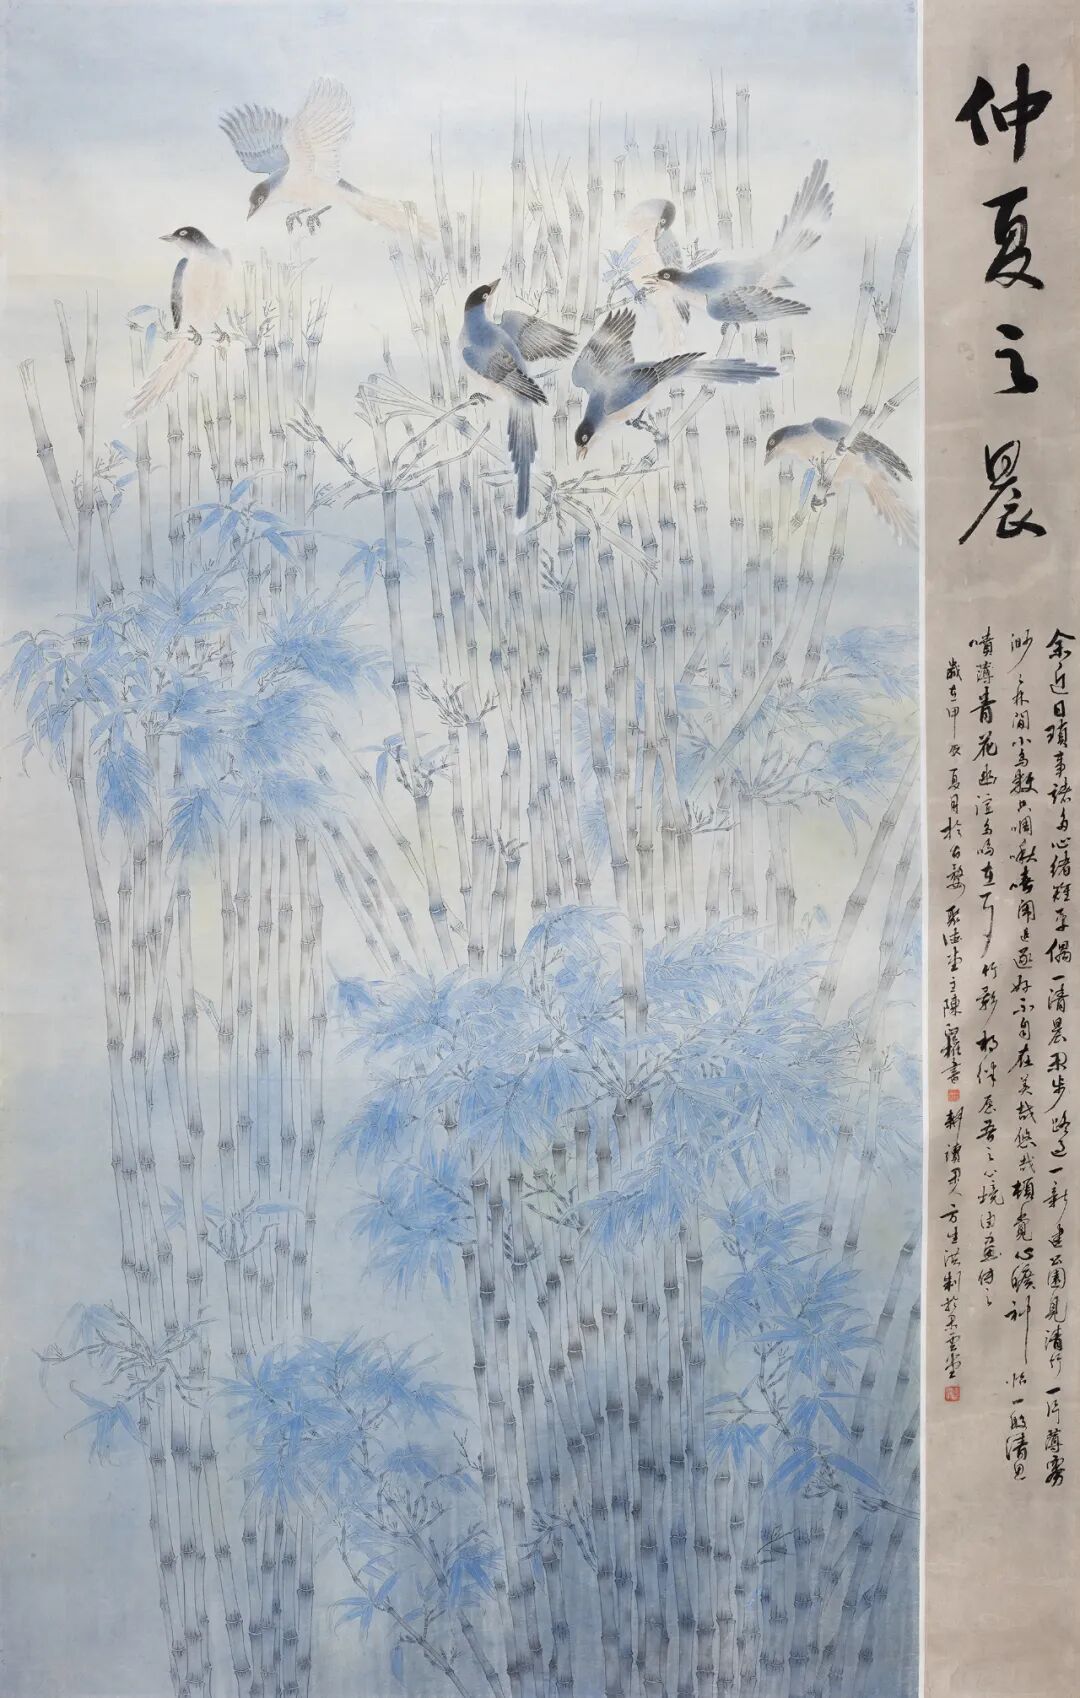 仲夏之晨
余近日瑣事諸多心緒難平偶一清晨閑步路過一新建公園見清竹一片薄霧
渺々林間小鳥數只啁啾嘻鬧追逐好不自在美哉悠哉頓覺心曠神怡一股清思
噴薄青花幽渲鳥鳴在耳竹影相伴應吾之心境由畫傳之
歲在甲辰夏月於古婺聚德堂主陳書 耕讀人方生洪制於墨雲堂